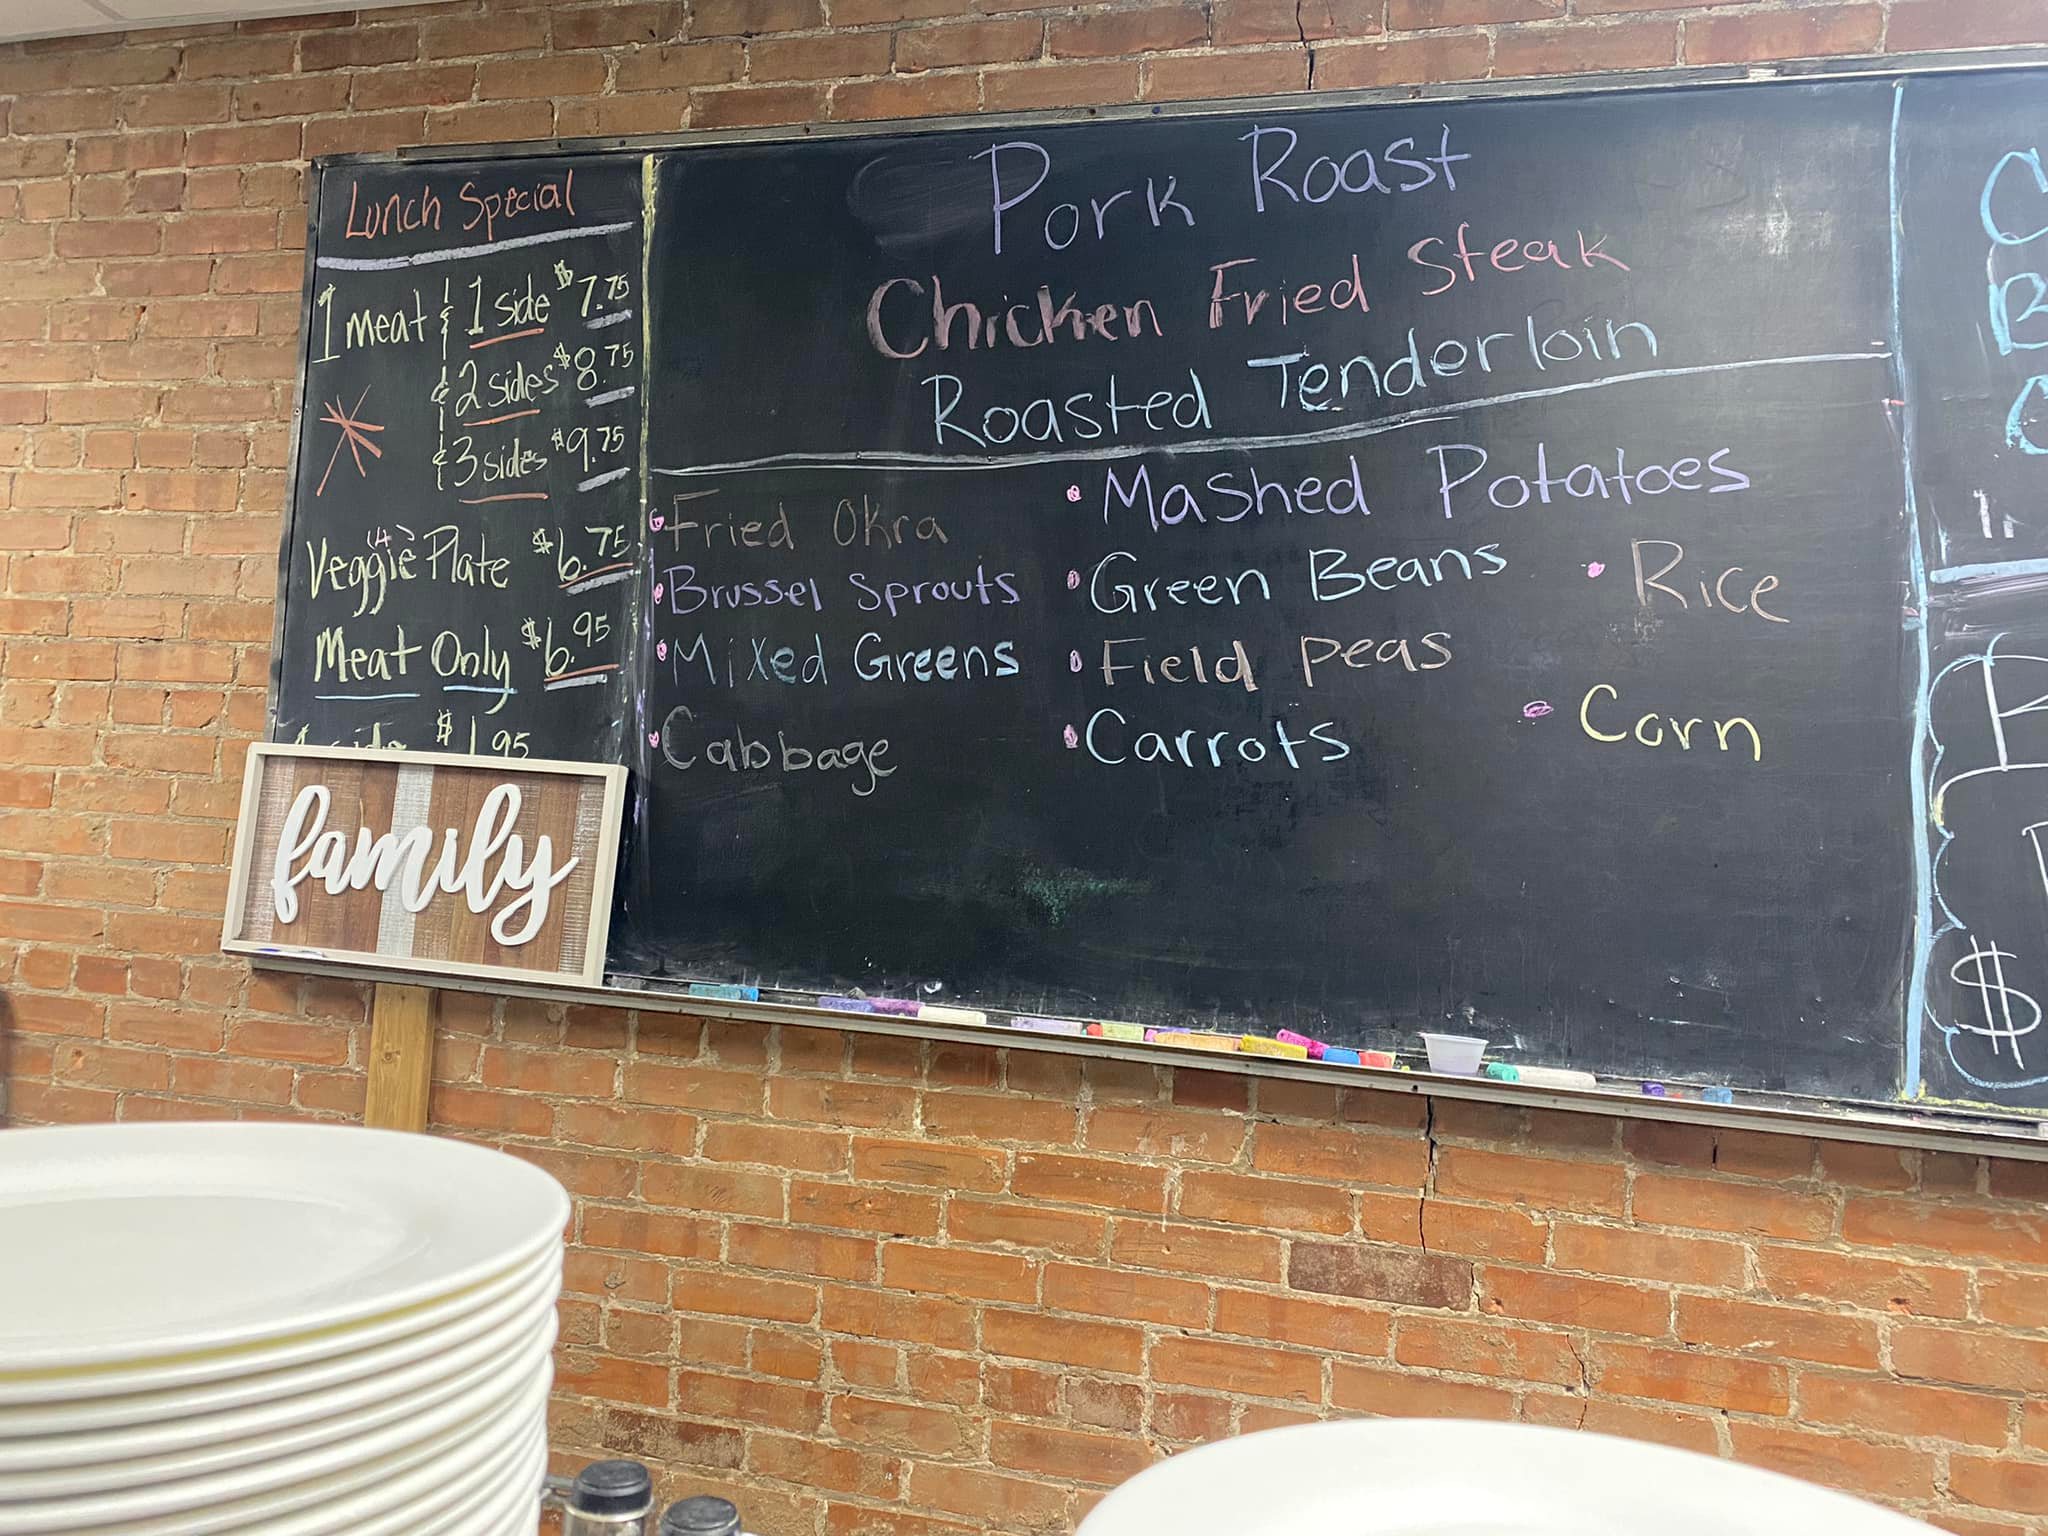 Lunch Special
1 meat & 1 side $7.75
& 2 sides $8.75
& 3 sides $9.75
Veggie (4) Plate $6.75
Meat Only $6.95
side $1.95
family
Pork Roast
Chicken Fried Steak
Roasted Tenderloin
• Fried Okra
• Brussel Sprouts
• Mixed Greens
• Cabbage
• Mashed Potatoes
• Green Beans
• Field peas
• Carrots
• Rice
• Corn
C
B
C
$